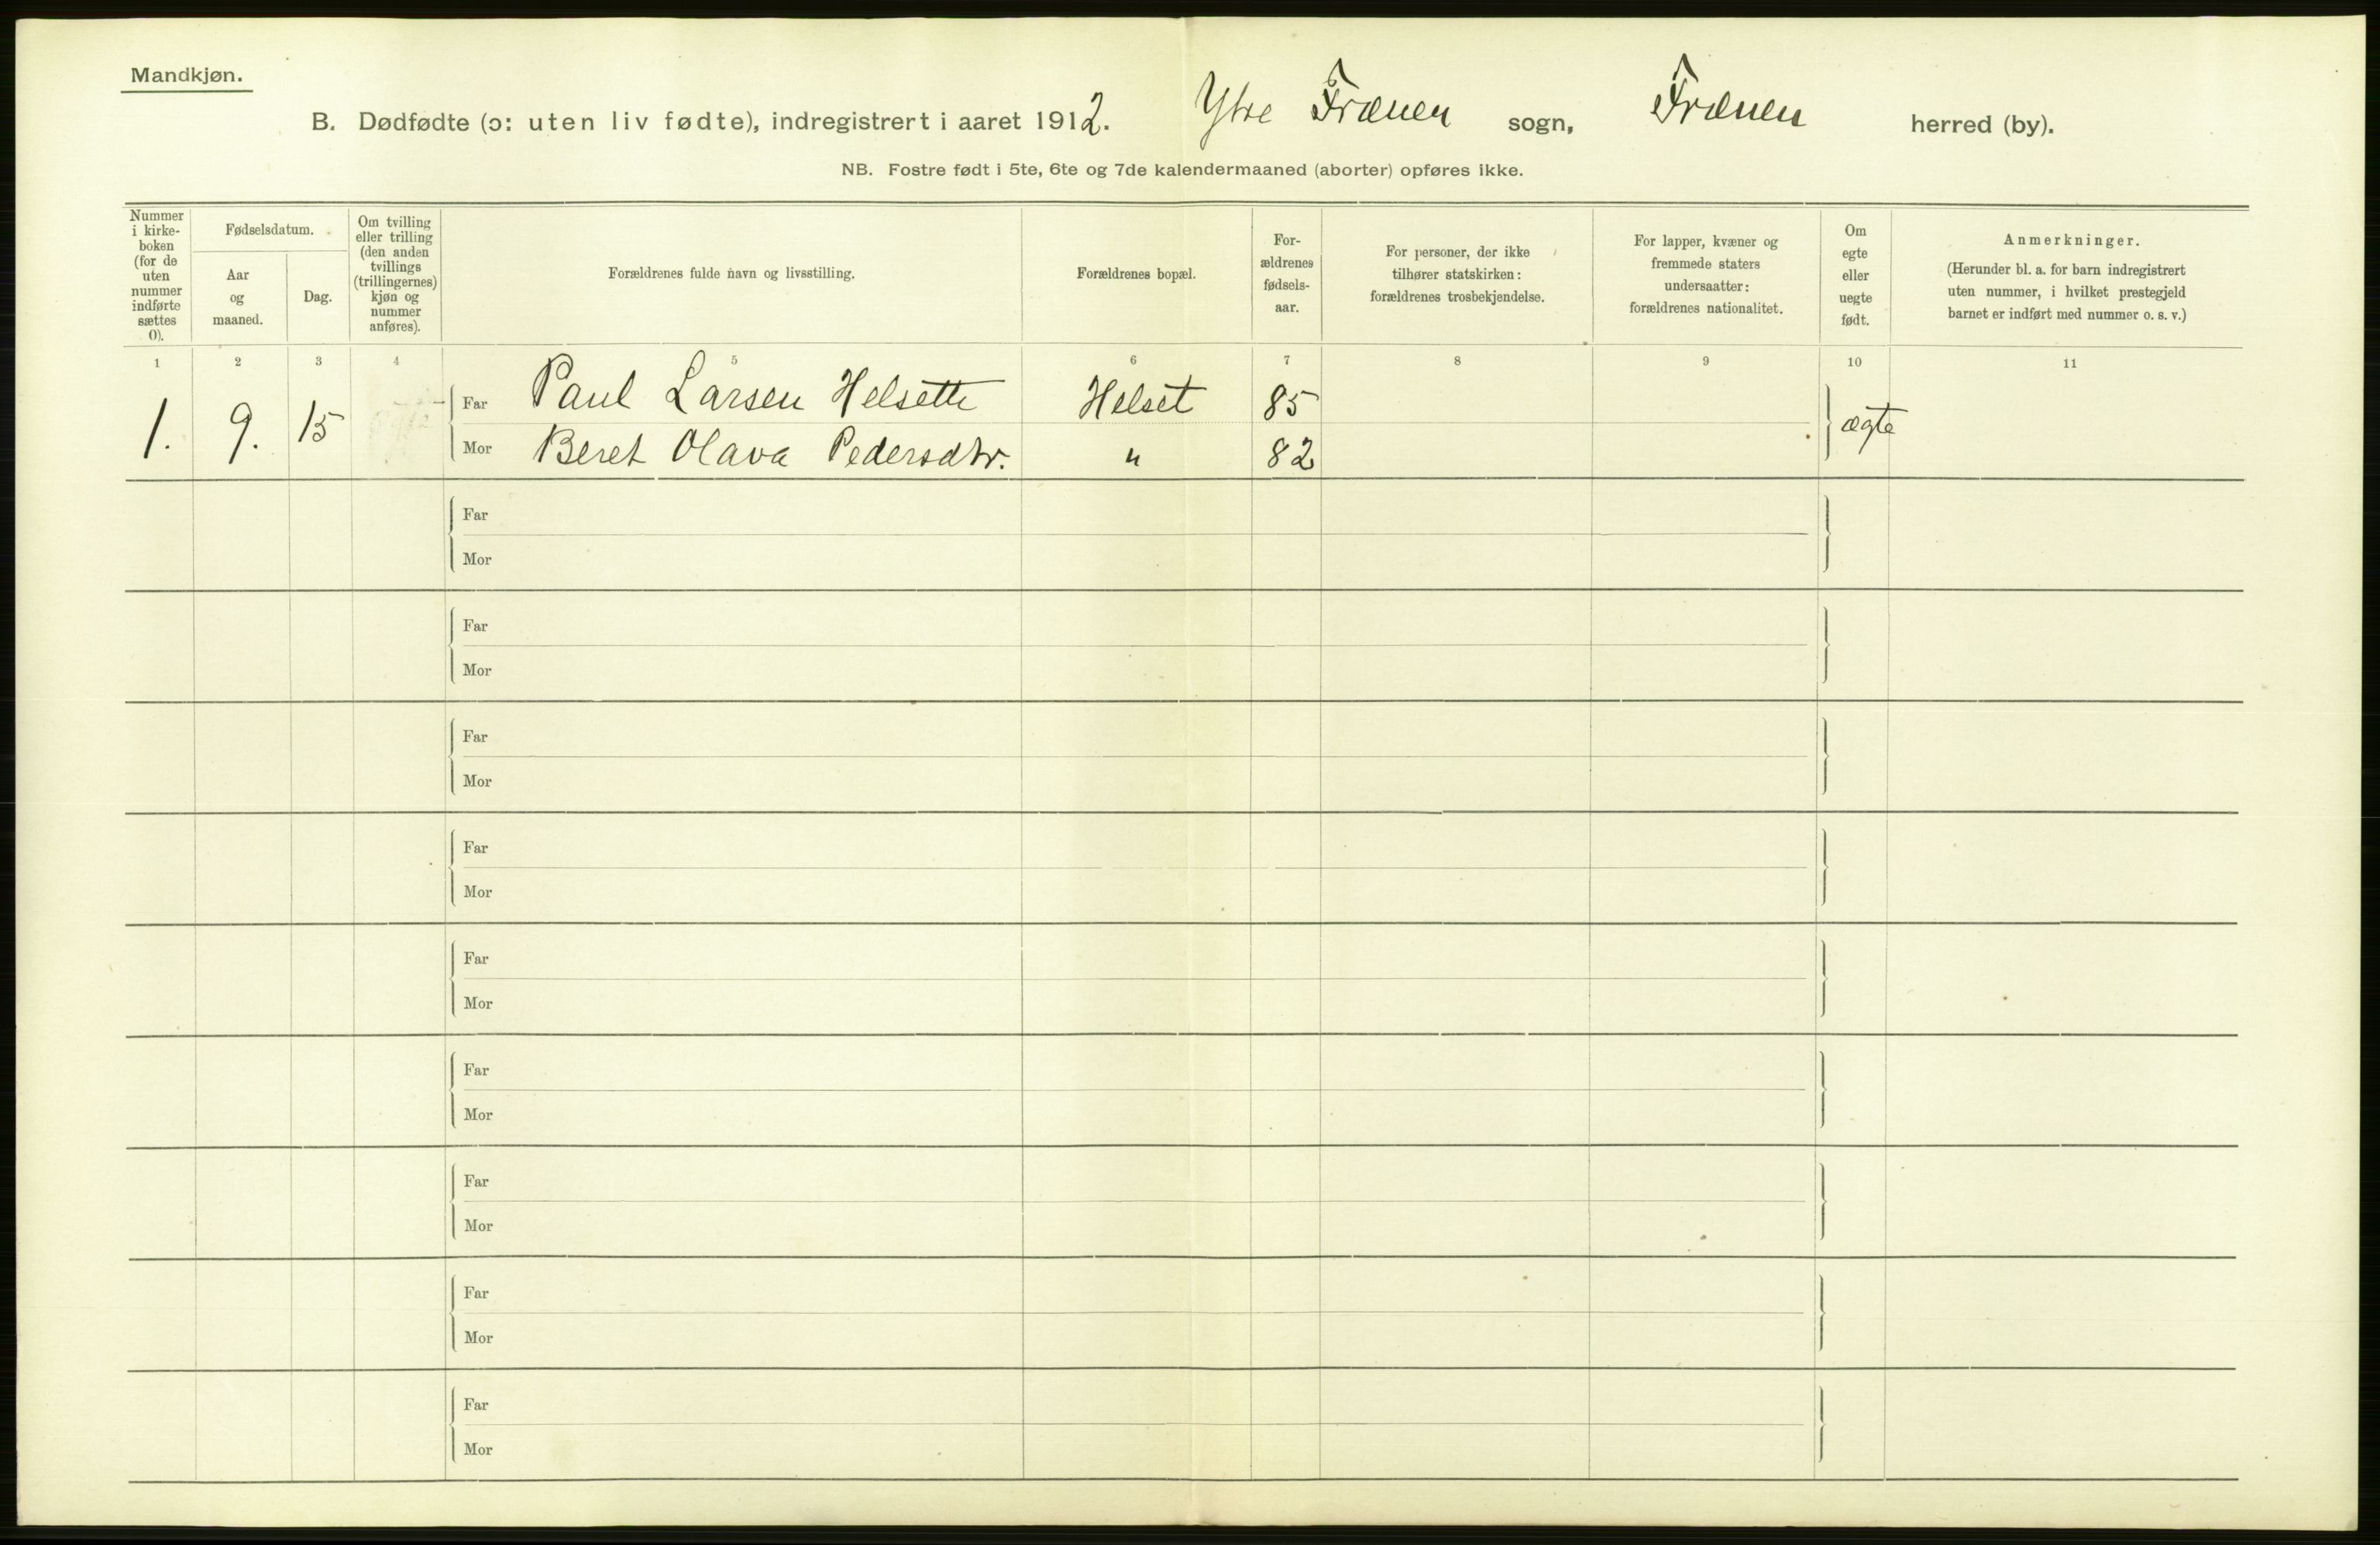 Mandkjøn.
B. Dødfødte (ɔ: uten liv fødte), indregistrert i aaret 1912. Ytre Frænen sogn, Frænen herred (by).
NB. Fostre født i 5te, 6te og 7de kalendermaaned (aborter) opføres ikke.
Nummer
i kirke-
boken
(for de
uten
nummer
indførte
sættes
0).
Fødselsdatum.
Aar
og
maaned.
Dag.
Om tvilling
eller trilling
(den anden
tvillings
(trillingernes)
kjøn og
nummer
anføres).
Forældrenes fulde navn og livsstilling.
Forældrenes bopæl.
For-
ældrenes
fødsels-
aar.
For personer, der ikke
tilhører statskirken:
forældrenes trosbekjendelse.
For lapper, kvæner og
fremmede staters
undersaatter:
forældrenes nationalitet.
Om
egte
eller
uegte
født.
Anmerkninger.
(Herunder bl. a. for barn indregistrert
uten nummer, i hvilket prestegjeld
barnet er indført med nummer o. s. v.)
1 2 3 4 5 6 7 8 9 10 11
1. 9. 15 Far Paul Larsen Helsette Helset 85 ægte
Mor Beret Olava Pedersdtr. " 82
Far
Mor
Far
Mor
Far
Mor
Far
Mor
Far
Mor
Far
Mor
Far
Mor
Far
Mor
Far
Mor